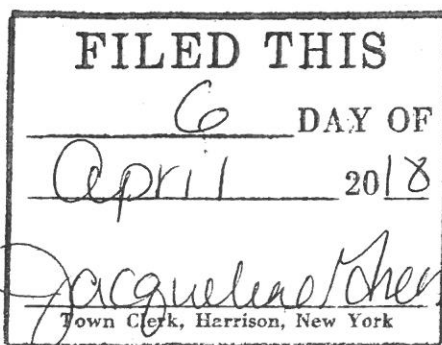 FILED THIS
6 DAY OF
April 2018
Jacqueline
Town Clerk, Harrison, New York